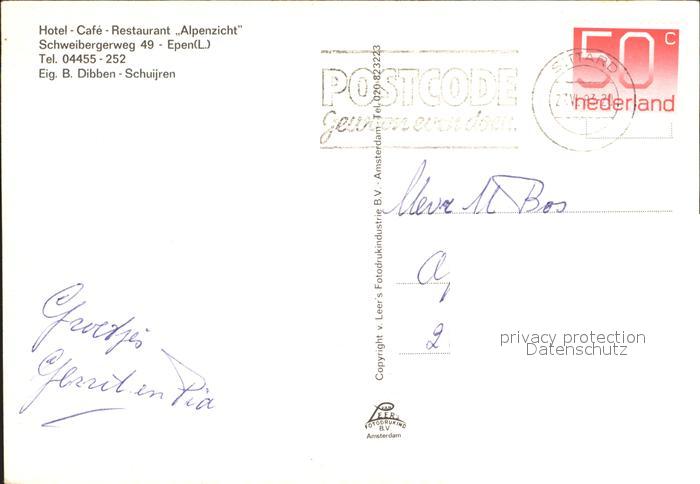 Hotel - Café - Restaurant „Alpenzicht”
Schweibergerweg 49 - Epen(L.)
Tel. 04455 - 252
Eig. B. Dibben - Schuijren
POSTCODE
Gewoon even doen.
SITTARD
50 C
nederland
Copyright v. Leer's Fotodrukindustrie B.V. - Amsterdam - Tel. 020-823223
Mevr M Bos
2
privacy protection
Datenschutz
Groetjes
Gerrit en Pia
VAN
LEER's
FOTODRUKIND
B.V
Amsterdam